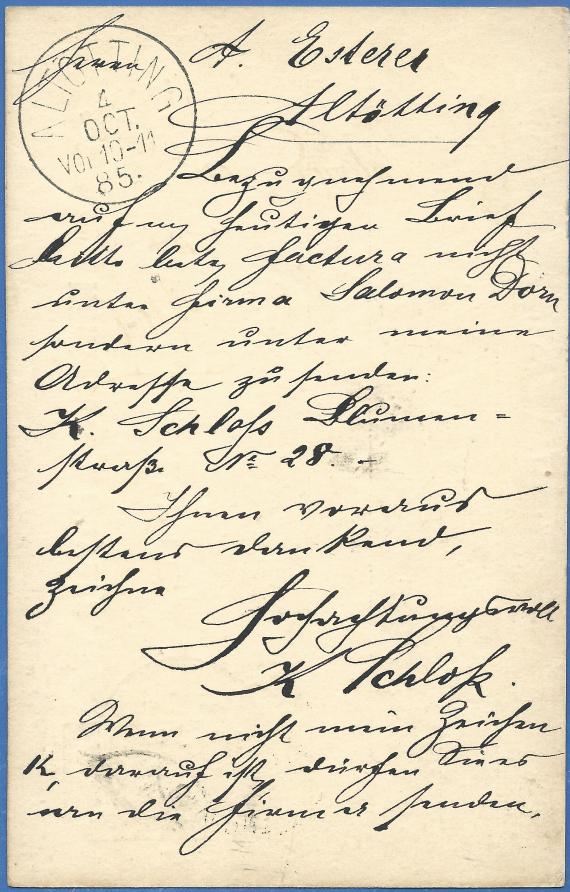 Herrn A. Esterer
Altötting
ALTÖTTING
4
OCT.
VOr 10-11
85.
Bezugnehmend
auf my heutigen Brief
bitte factura nicht
unter Firma Salomon Dorn
sondern unter meine
Adresse zu senden:
K. Schloß Blumen=
straße No 28.-
Ihnen voraus
bestens dankend,
zeichne
Hochachtungsvoll
K Schloß.
Wenn nicht mein Zeichen
K, darauf ist, dürfen Sie es
an die Firma senden.